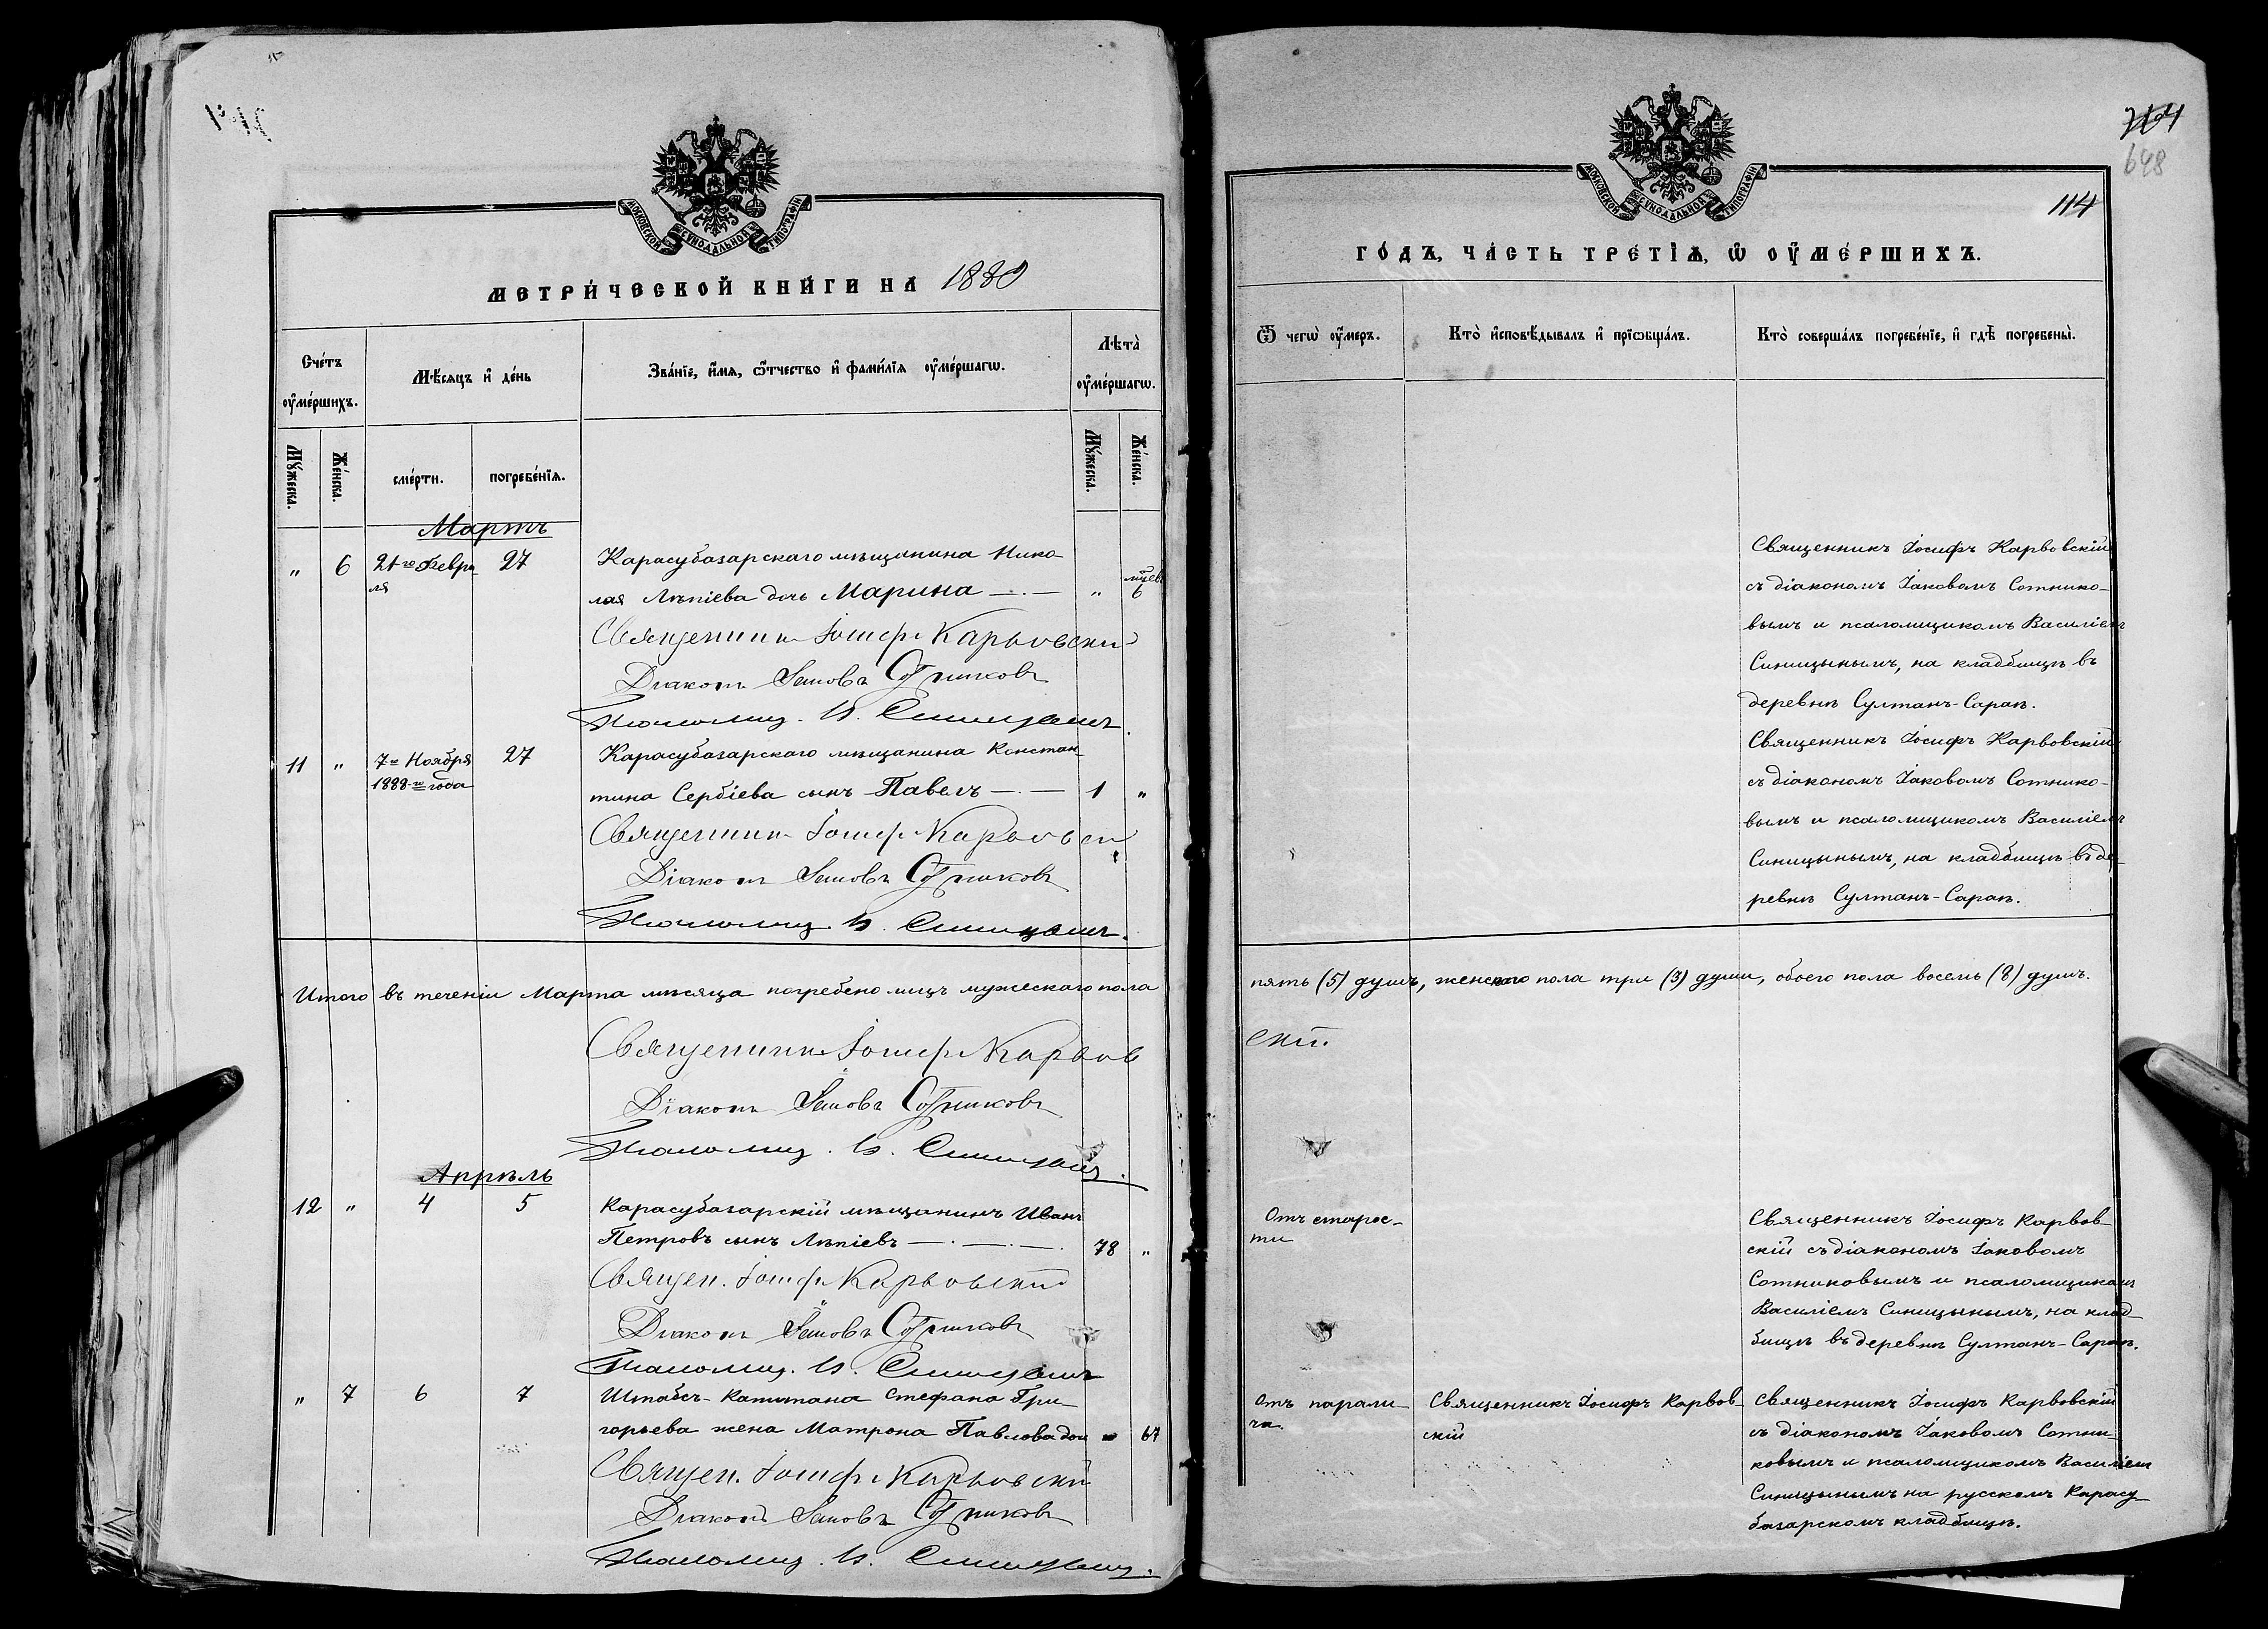 МОСКОВСКОЙ СѴНОДАЛЬНОЙ ТИПОГРАФІИ
МЕТРИ́ЧЕСКОЙ КНИ́ГИ НА 1889
Сче́тъ оу҆ме́ршихъ.
Мѣ́сяцъ и҆ де́нь
Зва́нїе, и҆́мѧ, ѻ҆́тчество и҆ фами́лїѧ оу҆ме́ршагѡ.
Лѣта̀ оу҆ме́ршагѡ.
Мꙋ́жеска.
Же́нска.
сме́рти.
погребе́нїѧ.
Мꙋ́жеска.
Же́нска.
Мартъ
" 6 21го Февра 27 Карасубазарскаго мѣщанина Нико-
ля
лая Лѣпіева дочь Марина " 6 мѣсев
Священникъ Іосифъ Карвовскій
Діаконъ Іаковъ Сотниковъ
Псаломщ. В. Синицынъ.
11 " 7го Ноября 27 Карасубазарскаго мѣщанина Констан-
1888-го года
тина Сербіева сынъ Павелъ 1 "
Священникъ Іосифъ Карвовскій
Діаконъ Іаковъ Сотниковъ
Псаломщ. В. Синицынъ.
Итого въ теченіи Марта мѣсяца погребено лицъ мужескаго пола
Священникъ Іосифъ Карвов
Діаконъ Іаковъ Сотниковъ
Псаломщ. В. Синицынъ.
Апрѣль
12 " 4 5 Карасубазарскій мѣщанинъ Иванъ
Петровъ сынъ Лѣпіевъ 78 "
Священ. Іосифъ Карвовскій
Діаконъ Іаковъ Сотниковъ
Псаломщ. В. Синицынъ
" 7 6 7 Штабсъ-Капитана Стефана Гри
горьева жена Матрона Павлова доч " 67
Священ. Іосифъ Карвовскій
Діаконъ Іаковъ Сотниковъ
Псаломщ. В. Синицынъ.
648
114
МОСКОВСКОЙ СѴНОДАЛЬНОЙ ТИПОГРАФІИ
ГО́ДЪ, ЧА́СТЬ ТРЕ́ТЇѦ, Ѽ ОУ҆МЕ́РШИХЪ.
Ѿ чегѡ̀ оу҆́меръ.
Кто̀ и҆сповѣ́дывалъ и҆ прїѡбща́лъ.
Кто̀ соверша́лъ погребе́нїе, и҆ гдѣ̀ погребены̀.
Священникъ Іосифъ Карвовскій
съ діакономъ Іаковомъ Сотнико-
вымъ и псаломщикомъ Василіемъ
Синицынымъ, на кладбищѣ въ
деревнѣ Султанъ-Сараѣ.
Священникъ Іосифъ Карвовскій
съ діакономъ Іаковомъ Сотнико-
вымъ и псаломщикомъ Василіемъ
Синицынымъ, на кладбищѣ въ де-
ревнѣ Султанъ-Сараѣ.
пять (5) душъ, женскаго пола три (3) души, обоего пола восемь (8) душъ.
скій.
Отъ старос-
ти
Священникъ Іосифъ Карвов-
скій съ діакономъ Іаковомъ
Сотниковымъ и псаломщикомъ
Василіемъ Синицынымъ, на клад-
бищѣ въ деревнѣ Султанъ-Сараѣ.
Отъ парали-
ча.
Священникъ Іосифъ Карвов-
скій
Священникъ Іосифъ Карвовскій
съ діакономъ Іаковомъ Сотни-
ковымъ и псаломщикомъ Василіемъ
Синицынымъ на русскомъ Карасу-
базарскомъ кладбищѣ.